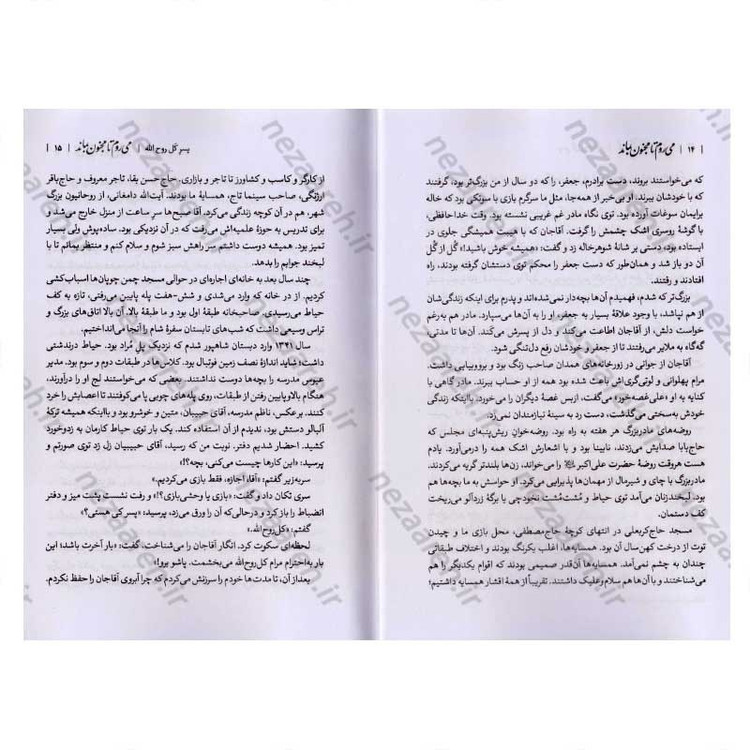 | ۱۴ | می‌روم تا مجنون بماند
که می‌خواستند بروند، دست برادرم، جعفر، را که دو سال از من بزرگ‌تر بود، گرفتند
که با خودشان ببرند. او بی‌خبر از همه‌جا، مثل ما سرگرم بازی با سوتکی بود که خاله
برایمان سوغات آورده بود. توی نگاه مادر غم غریبی نشسته بود. وقت خداحافظی،
با گوشهٔ روسری اشک چشمش را گرفت. آقاجان که با هیبت همیشگی جلوی در
ایستاده بود، دستی بر شانهٔ شوهرخاله زد و گفت: «همیشه خوش باشید!» گُل از گُل
آن دو باز شد و همان‌طور که دست جعفر را محکم توی دستشان گرفته بودند، راه
افتادند و رفتند.
بزرگ‌تر که شدم، فهمیدم آن‌ها بچه‌دار نمی‌شده‌اند و پدرم برای اینکه زندگی‌شان
از هم نپاشد، با وجود علاقهٔ بسیار به جعفر، او را به آن‌ها می‌سپارد. مادر هم به‌رغم
خواست دلش، از آقاجان اطاعت می‌کند و دل از پسرش می‌کند. آن‌ها تا مدتی،
گه‌گاه به ملایر می‌رفتند تا از جعفر و خودشان رفع دل‌تنگی شود.
آقاجان از جوانی در زورخانه‌های همدان صاحب زنگ بود و بروبیایی داشت.
مرام پهلوانی و لوتی‌گری‌اش باعث شده بود همه از او حساب ببرند. مادربزرگ به
کنایه به او «علی‌غصه‌خور» می‌گفت، ازبس غصهٔ دیگران را می‌خورد. بااینکه زندگی
خودش به‌سختی می‌گذشت، دست رد به سینهٔ نیازمندان نمی‌زد.
روضه‌های مادربزرگ هر هفته به راه بود. روضه‌خوانِ ریش‌پنبه‌ای مجلس که
حاج‌بابا صدایش می‌زدند، نابینا بود و با اشعارش اشک همه را درمی‌آورد. یادم
هست هروقت روضهٔ حضرت علی‌اکبر را می‌خواند، زن‌ها بلندتر گریه می‌کردند.
مادربزرگ با چای و شیرمال از مهمان‌ها پذیرایی می‌کرد. او حواسش به ما بچه‌ها هم
بود. لبخندزنان می‌آمد توی حیاط و مُشت‌مُشت نخودچی یا برگهٔ زردآلو می‌ریخت
کف دستمان.
مسجد حاج‌کربعلی در انتهای کوچهٔ حاج‌مصطفی، محل بازی ما و چیدن
توت از درخت کهن‌سال آن بود. همسایه‌ها، اغلب یکرنگ بودند و اختلاف طبقاتی
چندان به چشم نمی‌آمد. همسایه‌ها آن‌قدر صمیمی بودند که اقوام یکدیگر را هم
می‌شناختند و با آن‌ها هم سلام‌وعلیک داشتند. تقریباً از همهٔ اقشار همسایه داشتیم؛
پسر کَل روح‌الله | می‌روم تا مجنون بماند | ۱۵ |
از کارگر و کاسب و کشاورز تا تاجر و بازاری. حاج حسن بقا، تاجر معروف و حاج‌باقر
ارژنگی، صاحب سینما تاج، همسایهٔ ما بودند. آیت‌الله دامغانی، از روحانیون بزرگ
شهر، هم در آن کوچه زندگی می‌کرد. آقا صبح‌ها سر ساعت از منزل خارج می‌شد و
برای تدریس به حوزهٔ علمیه‌اش می‌رفت که در آن نزدیکی بود. ساده‌پوش ولی بسیار
تمیز بود. همیشه دوست داشتم سر راهش سبز شوم و سلام کنم و منتظر بمانم تا با
لبخند جوابم را بدهد.
چند سال بعد به خانه‌ای اجاره‌ای در حوالی مسجد چمن چوپان‌ها اسباب‌کشی
کردیم. از در خانه که وارد می‌شدی و شش-هفت پله پایین می‌رفتی، تازه به کف
حیاط می‌رسیدی. صاحب‌خانه طبقهٔ اول بود و ما طبقهٔ بالا. آن بالا اتاق‌های بزرگ و
تراس وسیعی داشت که شب‌های تابستان سفرهٔ شام را آنجا می‌انداختیم.
سال ۱۳۴۱ وارد دبستان شاهپور شدم که نزدیک پل مُراد بود. حیاط درندشتی
داشت؛ شاید اندازهٔ نصف زمین فوتبال بود. کلاس‌ها در طبقات دوم و سوم بود. مدیر
عبوس مدرسه را بچه‌ها دوست نداشتند. بعضی که می‌خواستند لج او را درآورند،
هنگام بالاوپایین رفتن از طبقات، روی پله‌های چوبی پا می‌کوفتند تا اعصابش را خرد
کنند. برعکس، ناظم مدرسه، آقای حبیبیان، متین و خوش‌رو بود و بااینکه همیشه ترکهٔ
آلبالو دستش بود، ندیدم از آن استفاده کند. یک بار توی حیاط کارمان به زدوخورد
کشید. احضار شدیم دفتر. نوبت من که رسید، آقای حبیبیان زل زد توی صورتم و
پرسید: «این کارها چیست می‌کنی، بچه؟!»
سربه‌زیر گفتم: «آقا، اجازه، فقط بازی می‌کردیم.»
سری تکان داد و گفت: «بازی یا وحشی‌بازی؟!» و رفت نشست پشت میز و دفتر
انضباط را باز کرد و درحالی‌که آن را ورق می‌زد، پرسید: «پسر کی هستی؟»
گفتم: «کل‌روح‌الله.»
لحظه‌ای سکوت کرد. انگار آقاجان را می‌شناخت. گفت: «بار آخرت باشد! این
بار به‌احترام مرام کل‌روح‌الله می‌بخشمت. پاشو برو!»
بعداز آن، تا مدت‌ها خودم را سرزنش می‌کردم که چرا آبروی آقاجان را حفظ نکردم.
nezaareh.ir